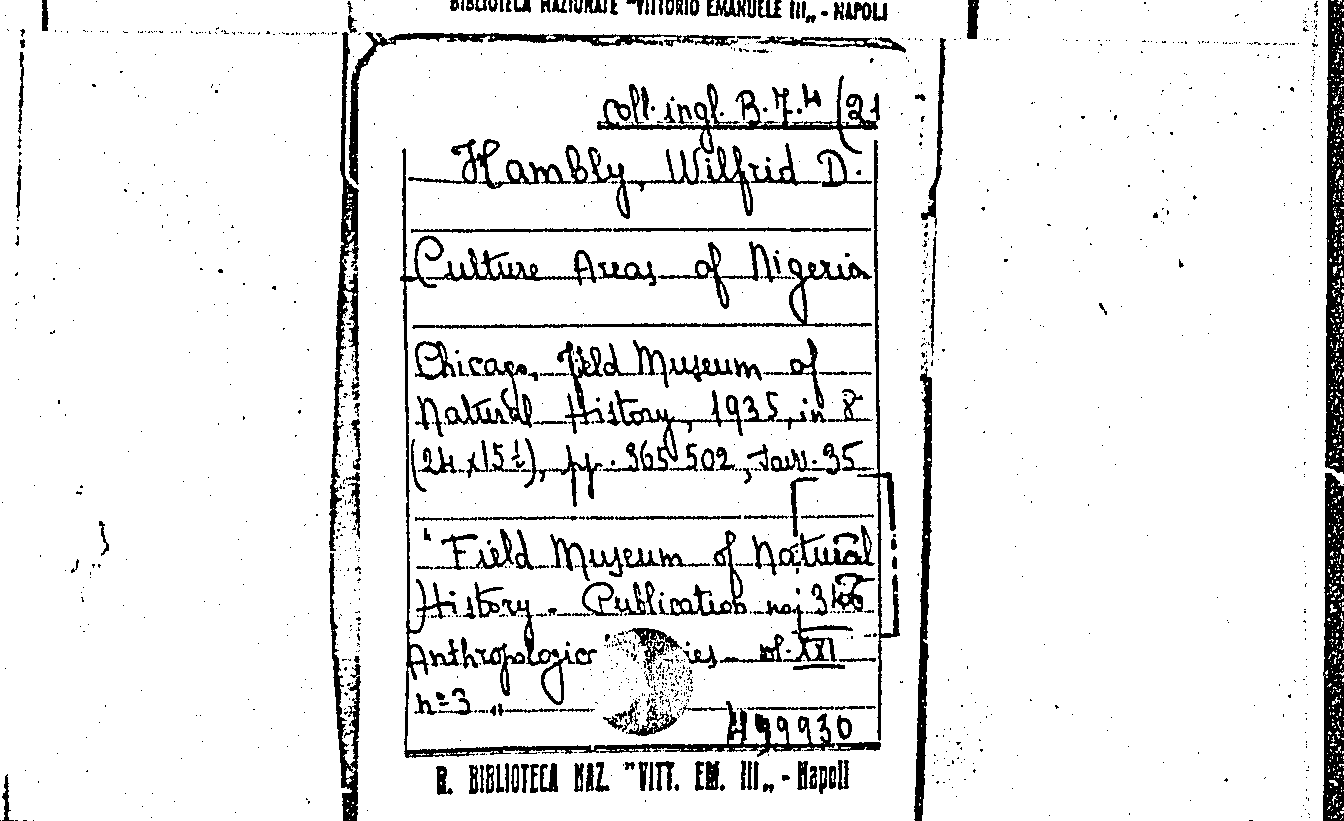 BIBLIOTECA NAZIONALE "VITTORIO EMANUELE III„ - NAPOLI
coll. ingl. B.7.4 (21
Hambly, Wilfrid D.
Culture Areas of Nigeria
Chicago, Field Museum of
Natural History, 1935, in 8°
(24 x 15½), pp. 365-502, tavv. 35
"Field Museum of Natural
History - Publication no;
Anthropologic ies vol. XXI
n° 3 „
R. BIBLIOTECA NAZ. "VITT. EM. III„ - Napoli